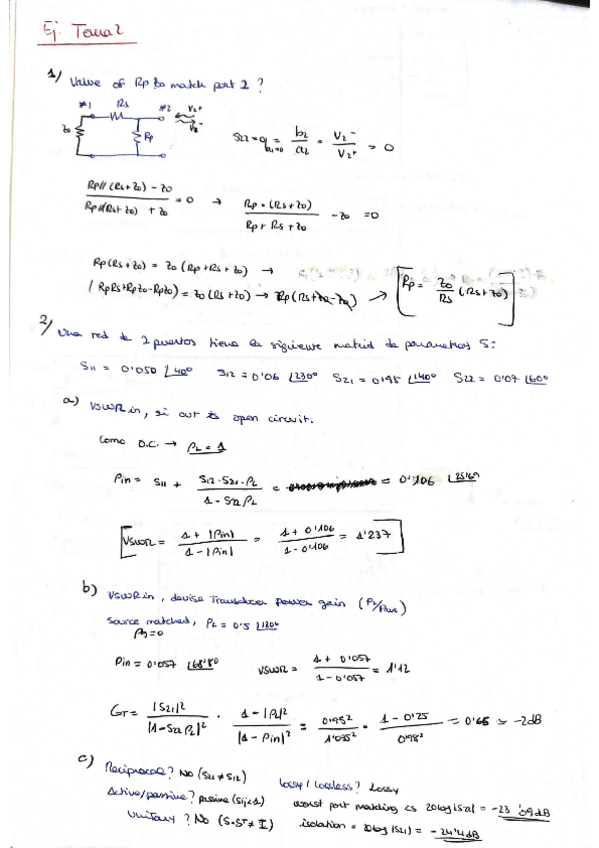 Ej. Tema 2
1) Value of Rp to match port 2 ?
#1 Rs #2 V2+
V2-
Zo Rp
S22 = a1=0 = b2/a2 = V2-/V2+ = 0
Rp//(Rs+Zo) - Zo / Rp//(Rs+Zo) + Zo = 0 → Rp · (Rs+Zo) / Rp + Rs + Zo - Zo = 0
Rp(Rs+Zo) = Zo(Rp+Rs+Zo) →
(RpRs+RpZo-RpZo) = Zo(Rs+Zo) → Rp(Rs+Zo-Zo) → [Rp = Zo/Rs (Rs+Zo)]
2) Una red de 2 puertos tiene la siguiente matriz de parametros S:
S11 = 0'050 ∠40º S12 = 0'06 ∠230º S21 = 0'95 ∠140º S22 = 0'07 ∠60º
a) VSWR in, si out is open circuit.
Como O.C. → ρL = 1
ρin = S11 + S12·S21·ρL / 1 - S22 ρL = = 0'106
[VSWR = 1 + |ρin| / 1 - |ρin| = 1 + 0'106 / 1 - 0'106 = 1'237]
b) VSWR in, Transducer power gain (PL/Pavs)
Source matched, ρL = 0'5 ∠120º
ρg=0
ρin = 0'057 VSWR = 1 + 0'057 / 1 - 0'057 = 1'12
GT = |S21|² / |1-S22 ρL|² · 1 - |ρL|² / |1 - ρin|² = 0'95² / 1'035² · 1 - 0'25 / 0'98² = 0'65 ≈ -2dB
c) Reciprocal? No (S21 ≠ S12) Lossy / lossless? Lossy
Active/passive? passive (Sij<1) worst port matching is 20log|S22| = -23'09dB
Unitary? No (S·S^T ≠ I) isolation = 20log|S12| = -24'4dB